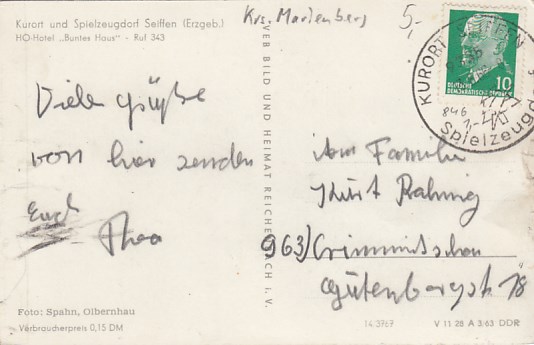 Kurort und Spielzeugdorf Seiffen (Erzgeb.)
HO-Hotel „Buntes Haus" - Ruf 343
Krs. Marienberg
5,-
Viele Grüße
von hier senden
Euch
Thea
VEB BILD UND HEIMAT REICHENBACH I. V.
KURORT SEIFFEN
Spielzeugd
10
DEUTSCHE
DEMOKRATISCHE REPUBLIK
846
An Familie
Kurt Rahnig
963) Crimmitschau
Gutenbergstr 18
Foto: Spahn, Olbernhau
Verbraucherpreis 0,15 DM
V 11 28 A 3/63 DDR